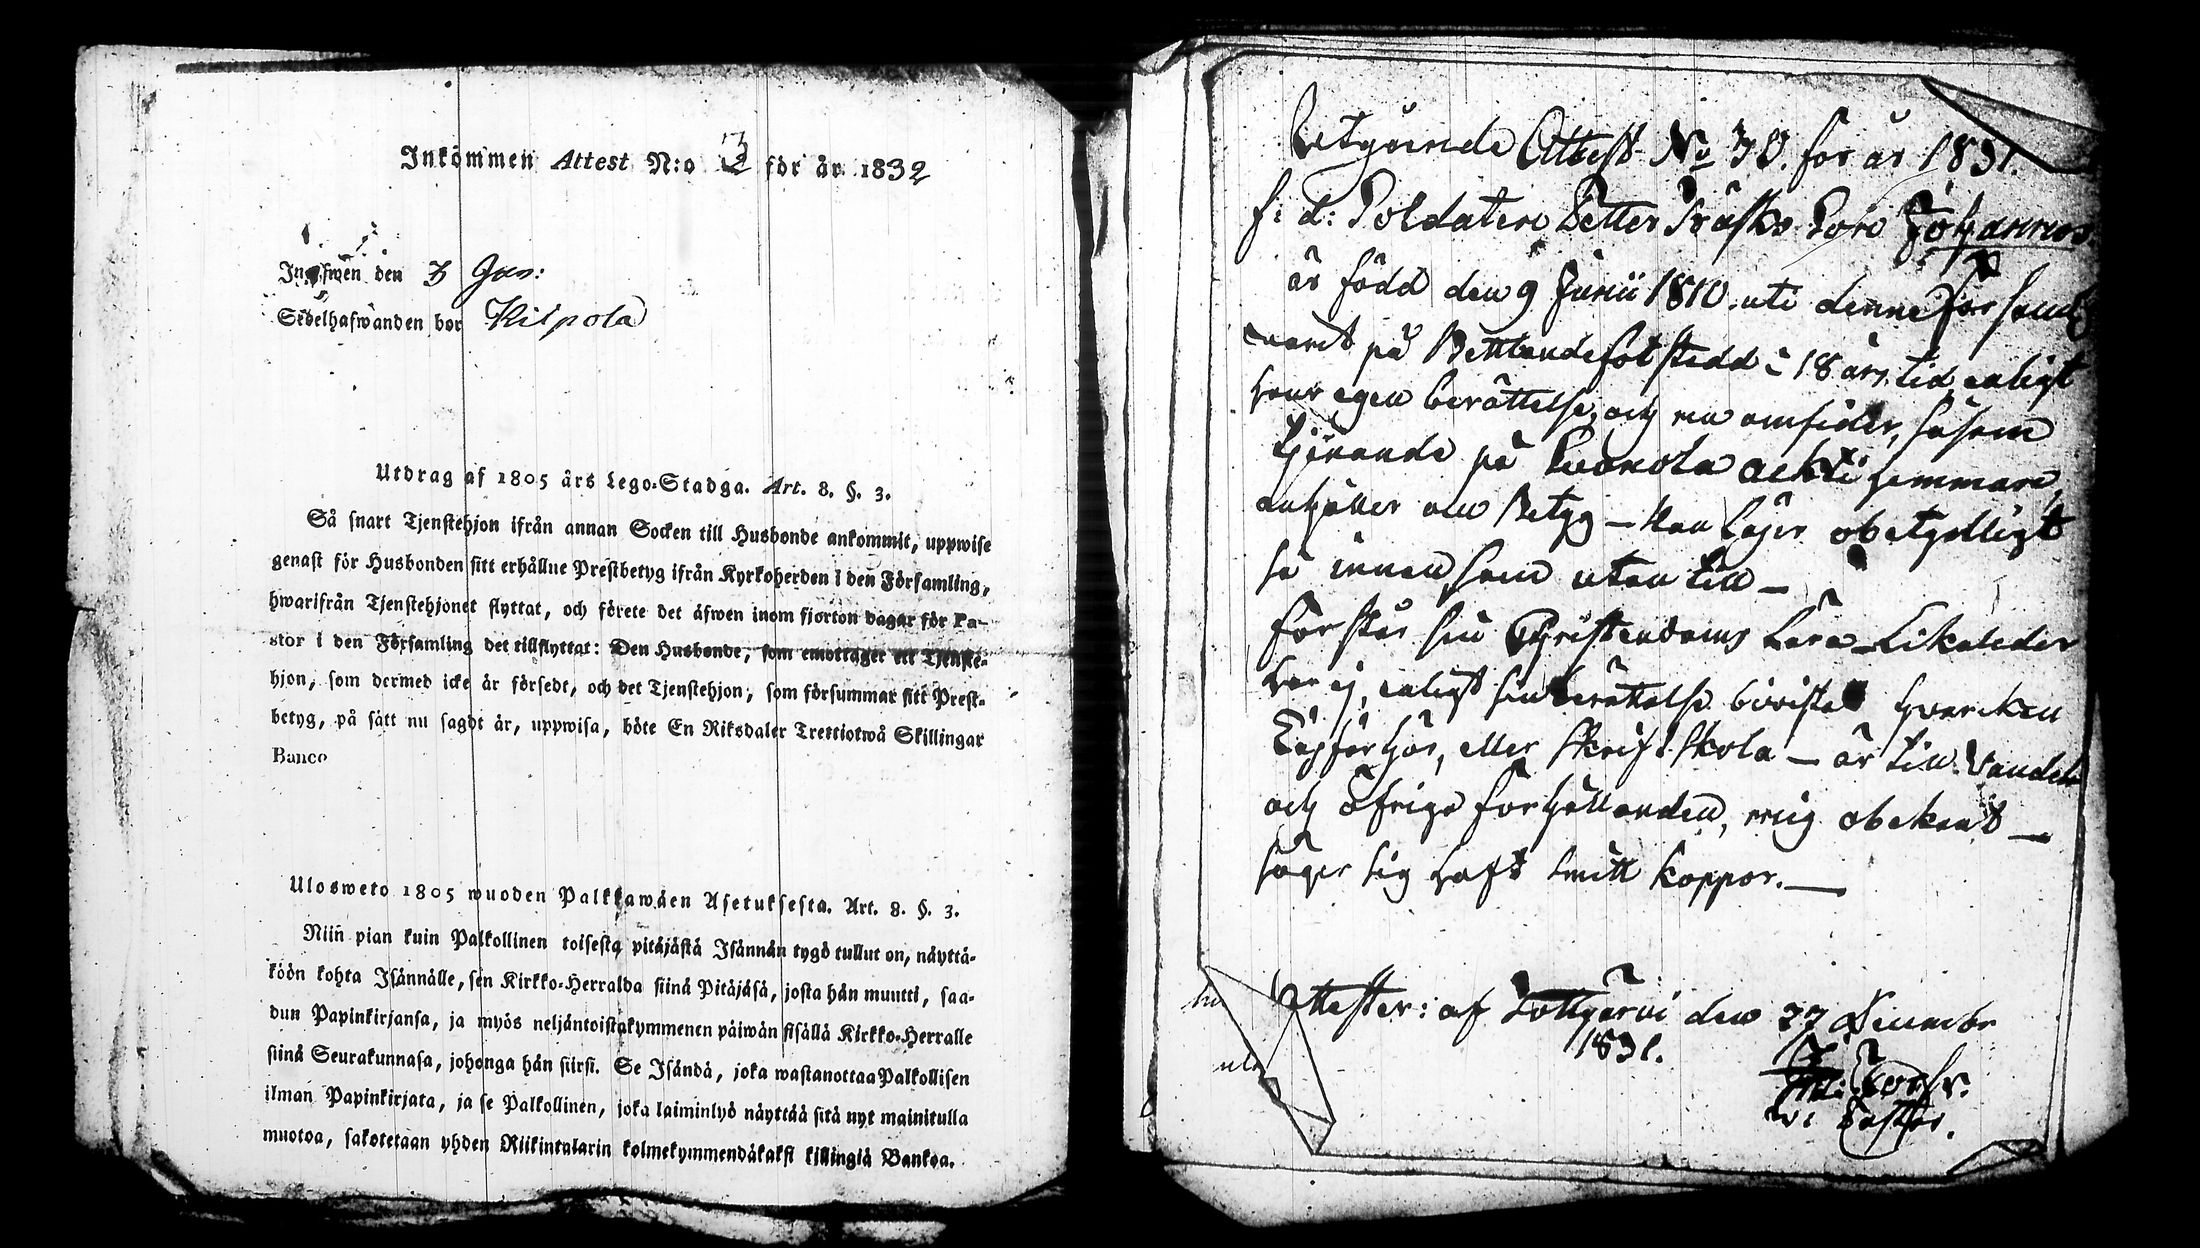 Inkommen Attest N:o 3 för år 1832
den 3 Jan:
Sedelhafwanden bor Kilpola
Utdrag af 1805 års Lego-Stadga. Art. 8. §. 3.
Så snart Tjenstehjon ifrån annan Socken till Husbonde ankommit, uppwise
genast för Husbonden sitt erhållne Prestbetyg ifrån Kyrkoherden i den Församling,
hwarifrån Tjenstehjonet flyttat, och förete det äfwen inom fjorton dagar för Pa-
stor i den Församling det tillflyttat: Den Husbonde, som emottager ett Tjenste-
hjon, som dermed icke är försedt, och det Tjenstehjon, som försummar sitt Prest-
betyg, på sätt nu sagdt är, uppwisa, böte En Riksdaler Trettiotwå Skillingar
Banco
Ulosweto 1805 wuoden Palkkawäen Asetuksesta. Art. 8. §. 3.
Niin pian kuin Palkollinen toisesta pitäjästä Isännän tygö tullut on, näyttä-
köön kohta Isännälle, sen Kirkko-Herralda siinä Pitäjäsä, josta hän muutti, saa-
dun Papinkirjansa, ja myös neljäntoistakymmenen päiwän sisällä Kirkko-Herralle
siinä Seurakunnasa, johonga hän siirsi. Se Isändä, joka wastanottaa Palkollisen
ilman Papinkirjata, ja se Palkollinen, joka laiminlyö näyttää sitä nyt mainitulla
muotoa, sakotetaan yhden Riikintalarin kolmekymmendäkaksi killingiä Bankoa.
Utgående Attest No 30. för år 1831.
f: d: Soldaten Petter Träsks Son Johannes
är född den 9 Junii 1810 uti denne
på i 18 års tid, enligt
hans egen berättelse, och nu omsider, såsom
tjenande på hemman,
anhåller om Betyg – Han läser obetydligt
så innan som utan till –
förstår sin Christendoms Lära – Likaledes
har ej, enligt sin berättelse bivistat hvarcken
Läsförhör, eller Skriftskola – är till Vandel
och öfriga förhållanden, mig obekant –
säger sig haft koppor. –
Attester: af den 27 December
1831.
v: Pastor.